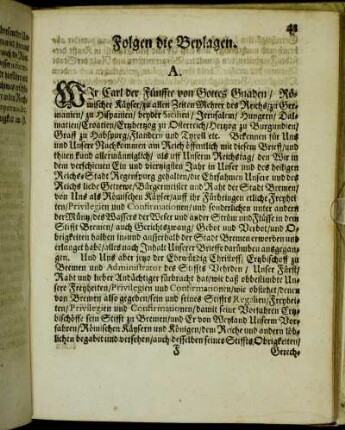 48
Folgen die Beylagen.
A.
WIr Carl der Fünffte von Gottes Gnaden / Rö-
mischer Käyser / zu allen Zeiten Mehrer des Reichs / zu Ger-
manien / zu Hispanien / beyder Sicilien / Jerusalem / Hungern / Dal-
matien / Croatien / Ertzhertzog zu Osterreich / Hertzog zu Burgundien /
Graff zu Habspurg / Flandern und Tyroll etc. Bekennen für Uns
und Unsere Nachkommen am Reich öffentlich mit diesem Brieff / und
thuen kund allermänniglich / als uff Unserm Reichstag / den Wir in
dem verschienen Ein und viertzigsten Jahr in Unser und des heiligen
Reichs Stadt Regenspurg gehalten / die Ehrsahmen Unsere und des
Reichs liebe Getrewe / Bürgermeister und Raht der Stadt Bremen /
von Uns als Römischen Käyser / auff ihr Fürbringen etliche Freyhei-
ten / Privilegien und Confirmationen / und sonderlichen unter andern
der Müntz / des Wassers der Weser und ander Ström und Flüsse in dem
Stifft Bremen / auch Gerichtszwang / Gebot und Verbot / und Ob-
rigkeiten halben in und ausserhalb der Stadt Bremen erworben und
erlanget haben / alles nach Inhalt Unserer Brieffe darümben ausgegan-
gen. Und Uns aber jetzo der Ehrwürdig Christoff / Ertzbischoff zu
Bremen und Administrator des Stiffts Vehrden / Unser Fürst /
Raht und lieber Andächtiger fürbracht hat / wie daß obbestimbte Un-
sere Freyheiten / Privilegien und Confirmationen / wie obstehet / denen
von Bremen also gegeben / sein und seines Stiffts Regalien / Freyhei-
ten / Privilegien und Confirmationen / damit seine Vorfahren Ertz-
bischöffe sein Stifft zu Bremen / und Er von Weyland Unserm Vor-
fahren / Römischen Käysern und Königen / dem Reiche und andern löb-
lichen begabet und versehen / auch desselben seines Stiffts Obrigkeiten /
F
Gerech-